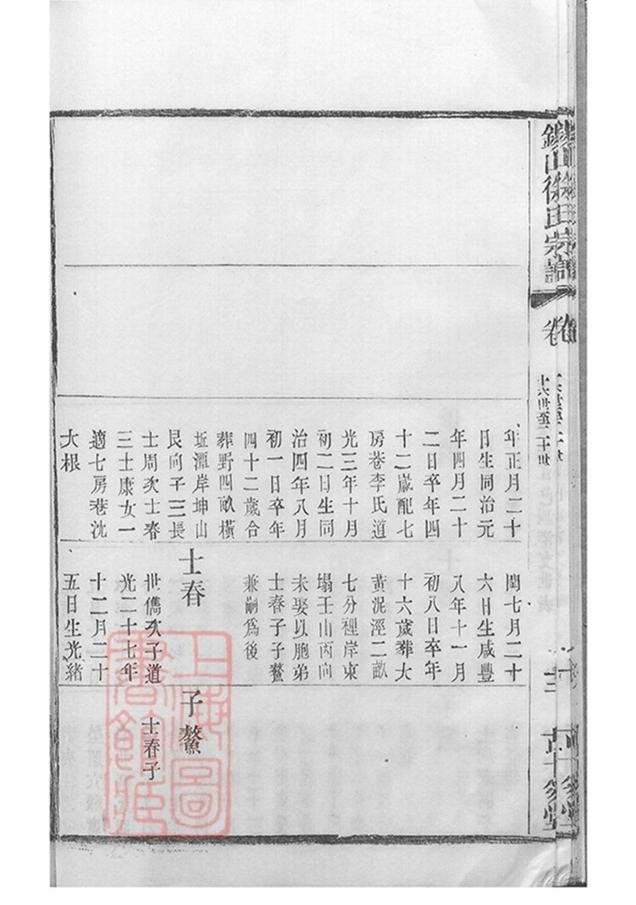 錢山徐氏宗譜
卷
十六世至二十世
年正月二十
日生同治元
年四月二十
二日卒年四
十二歲配七
房巷李氏道
光三年十月
初二日生同
治四年八月
初一日卒年
四十二歲合
葬野四畝橫
坵潭岸坤山
艮向子三長
士周次士春
三士康女一
適七房巷沈
大根
閏七月二十
六日生咸豐
八年十一月
初八日卒年
十六歲葬大
黃泥涇二畝
七分裡岸東
塌壬山丙向
未娶以胞弟
士春子子鰲
兼嗣爲後
士春
世儁次子道
光二十七年
十二月二十
五日生光緒
子鰲
士春子
上海圖書館藏